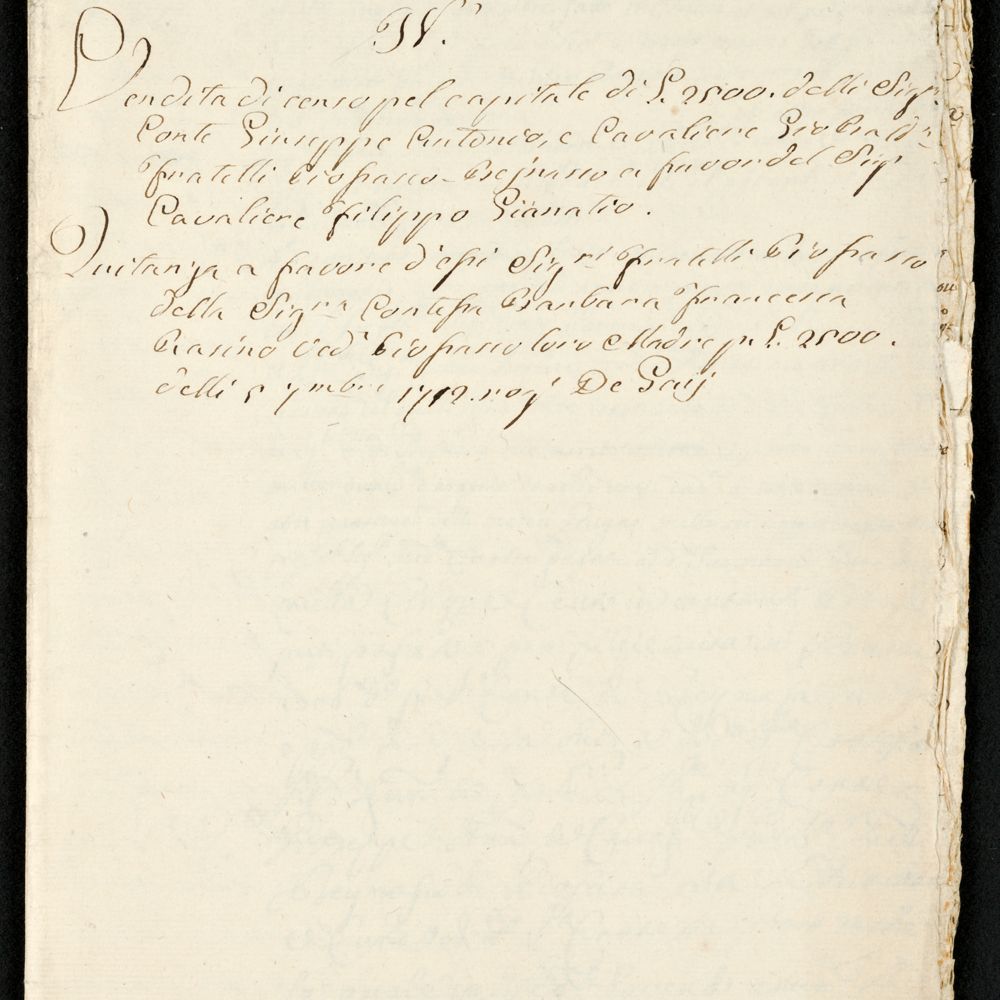 IV.
Vendita di censo pel capitale di L. 2500. delli Sigri
Conte Giuseppe Antonio, e Cavaliere Gio Batta
Fratelli Piossasco a favor del Sigr
Cavaliere Filippo Gianatio.
Quitanza a favore d'essi Sigri Fratelli Piossasco
della Sigra Contessa Barbara Francesca
Ved. Piossasco loro Madre p. L. 2500.
delli 5 7mbre 1712. rogo De Gaij